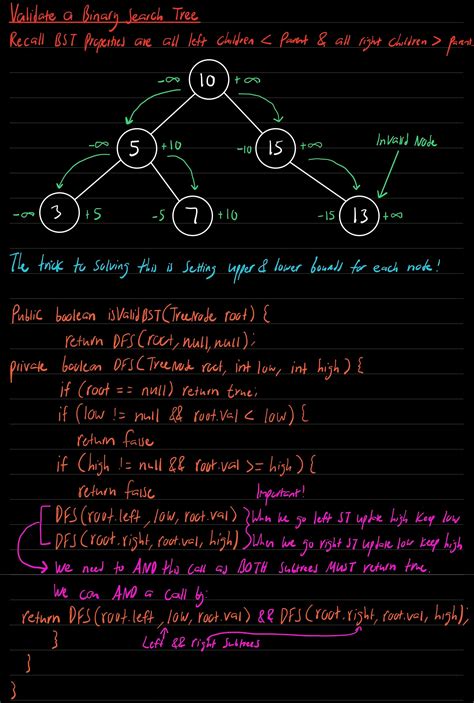 Validate a Binary Search Tree
Recall BST Properties are all left children < Parent & all right children > parent.
-∞ 10 +∞
-∞ 5 +10 -10 15 +∞ Invalid Node
-∞ 3 +5 -5 7 +10 -15 13 +∞
The trick to solving this is setting upper & lower bounds for each node!
Public boolean isValidBST(TreeNode root) {
return DFS(root,null,null);
private boolean DFS(TreeNode root, int low, int high) {
if (root == null) return true;
if (low != null && root.val < low) {
return false
if (high != null && root.val >= high) {
return false
Important!
DFS(root.left, low, root.val) When we go left ST update high keep low
DFS(root.right, root.val, high) When we go right ST update low keep high
We need to AND this call as BOTH subtrees MUST return true.
We can AND a call by:
return DFS(root.left, low, root.val) && DFS(root.right, root.val, high);
} Left && right subtrees
}
}